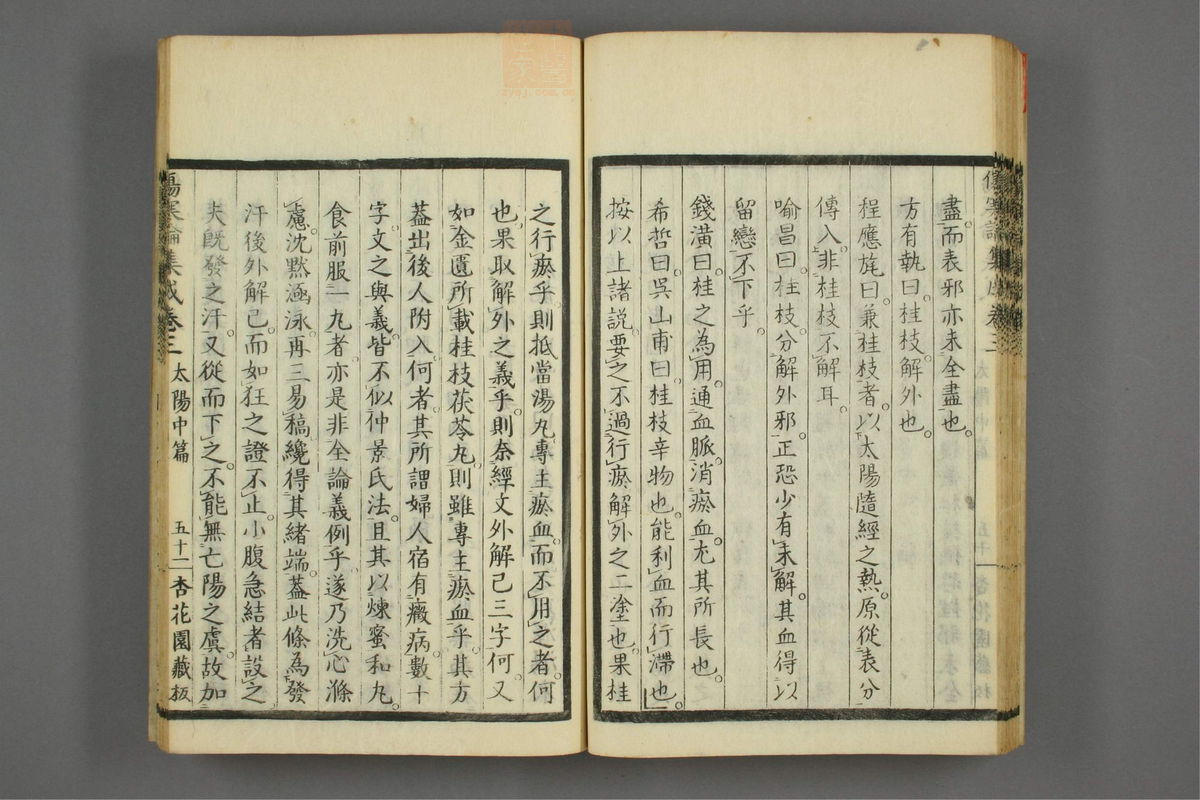 盡。而表邪亦未全盡也。
方有執曰。桂枝解外也。
程應旄曰。兼桂枝者。以太陽隨經之熱。原從表分
傳入。非桂枝不解耳。
喻昌曰。桂枝。分解外邪。正恐少有未解。其血得以
留戀不下乎。
錢潢曰。桂之為用。通血脈。消瘀血。尤其所長也。
希哲曰。吳山甫曰。桂枝辛物也。能利血而行滯也。
按以上諸說。要之不過行瘀解外之二塗也。果桂
之行瘀乎。則抵當湯丸。專主瘀血。而不用之者。何
也。果取解外之義乎。則奈經文外解已三字何。又
如金匱所載桂枝茯苓丸。則雖專主瘀血乎。其方
蓋出後人附入。何者。其所謂婦人宿有癥病。數十
字。文之與義。皆不似仲景氏法。且其以煉蜜和丸。
食前服一丸者。亦是非全論義例乎。遂乃洗心滌
慮。沈默涵泳。再三易稿。纔得其緒端。蓋此條為發
汗後外解已。而如狂之證不止。小腹急結者設之
夫既發之汗。又從而下之。不能無亡陽之虞。故加
傷寒論集成卷三 太陽中篇 五十二 杏花園藏板